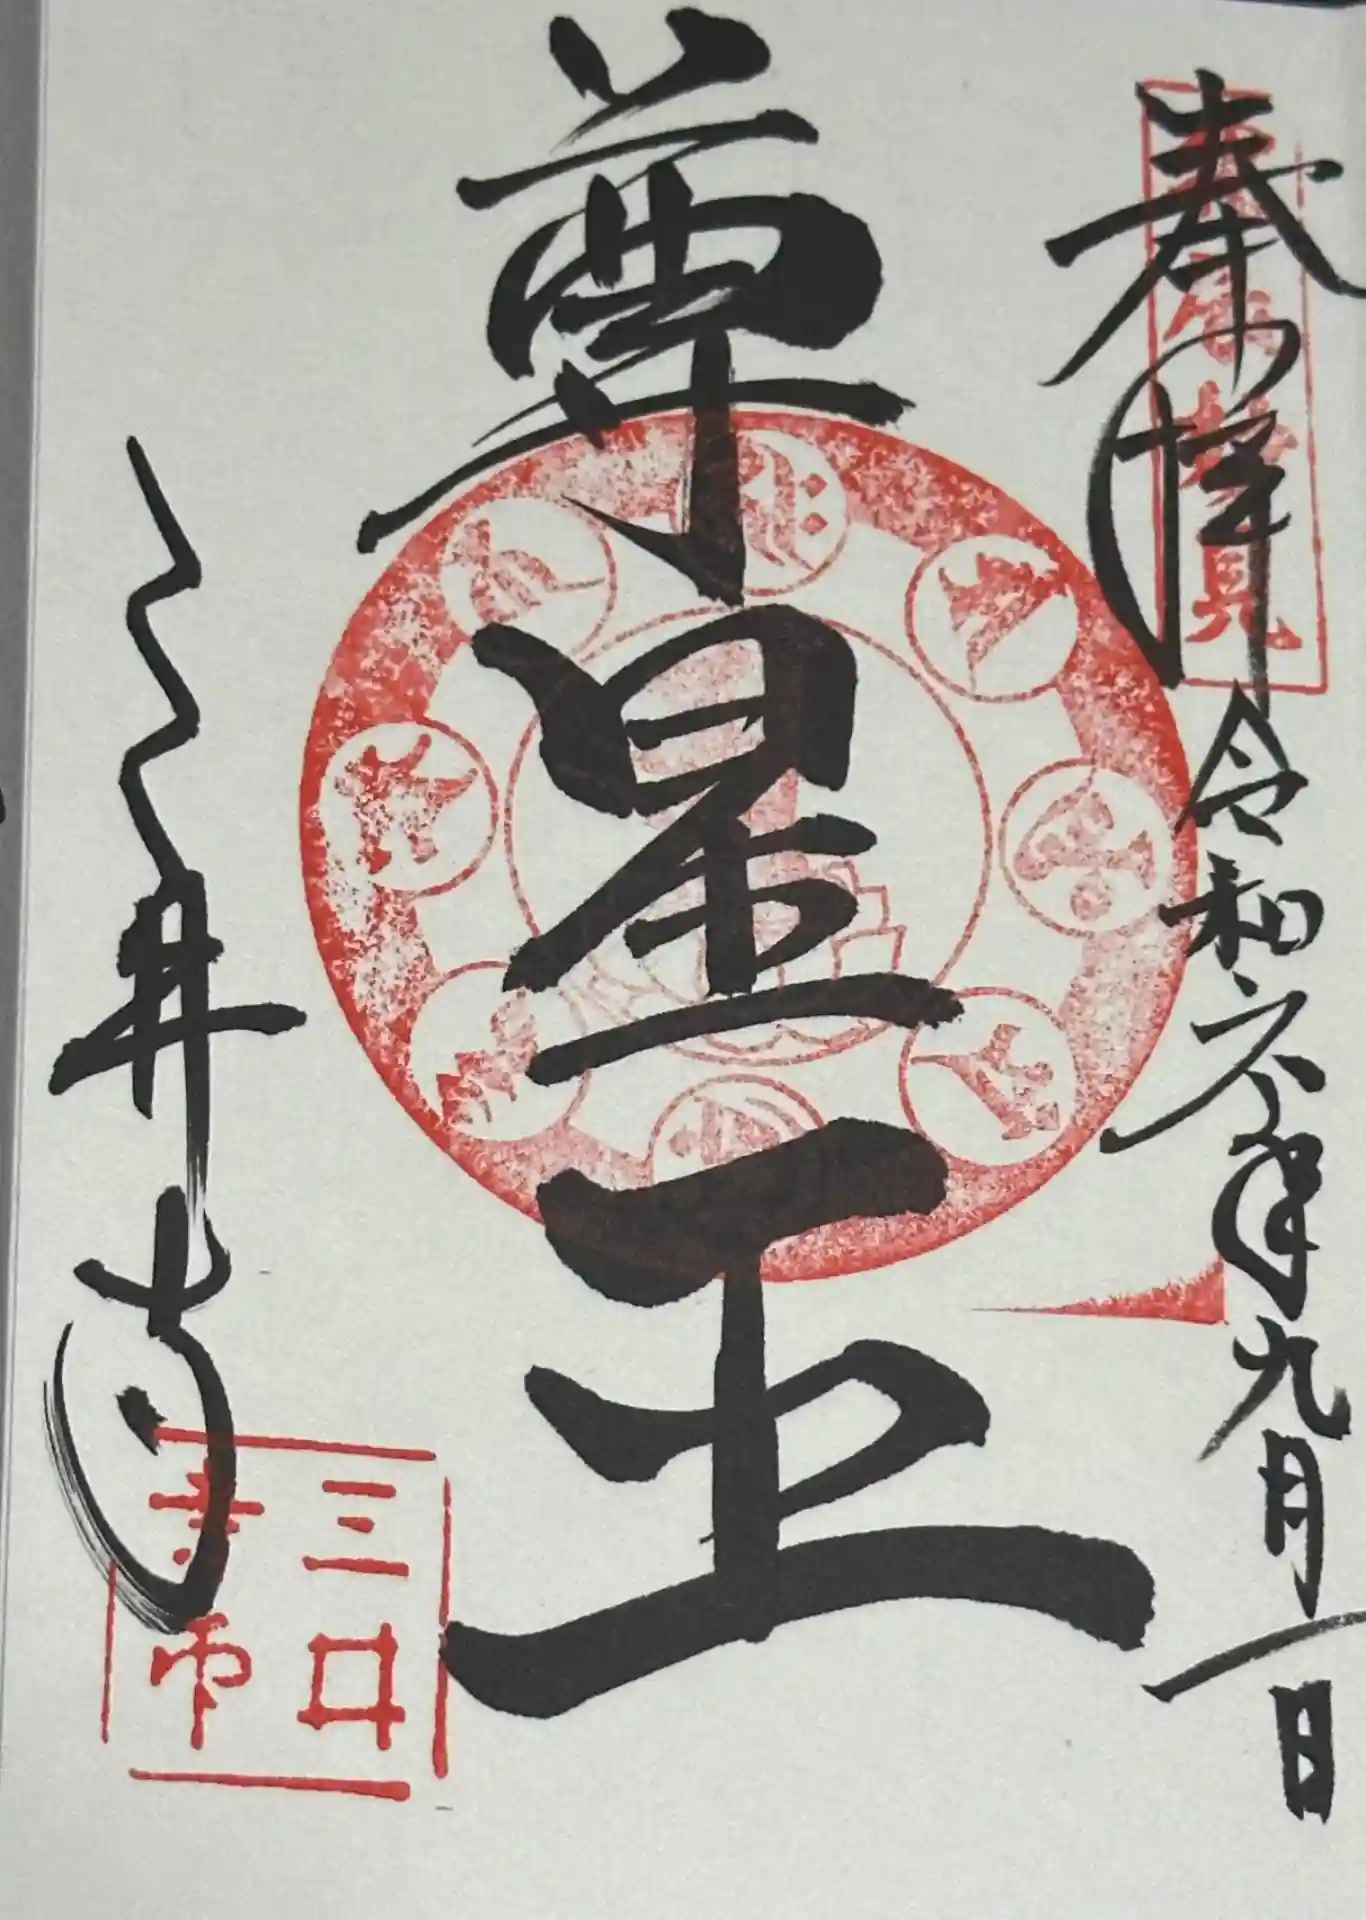 奉拝 令和六年九月一日
尊星王
三井寺
三井
寺印